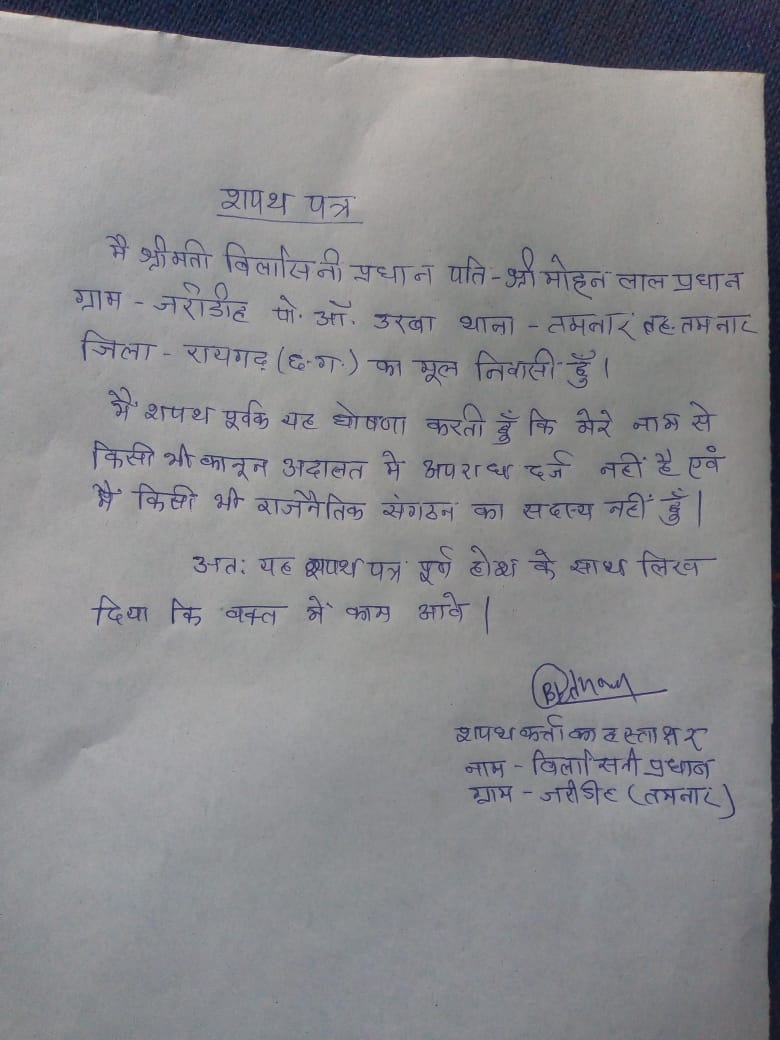 शपथ पत्र
मै श्रीमती विलासिनी प्रधान पति - श्री मोहन लाल प्रधान
ग्राम - जरीडीह पो. ऑ. उरबा थाना - तमनार तह. तमनार
जिला - रायगढ़ (छ.ग.) का मूल निवासी हूँ।
मैं शपथ पूर्वक यह घोषणा करती हूँ कि मेरे नाम से
किसी भी कानून अदालत मे अपराध दर्ज नहीं है एवं
मैं किसी भी राजनैतिक संगठन का सदस्य नहीं हूँ।
अतः यह शपथ पत्र पूर्ण होश के साथ लिख
दिया कि वक्त में काम आवे।
शपथकर्त्ता का हस्ताक्षर
नाम - विलासिनी प्रधान
ग्राम - जरीडीह (तमनार)